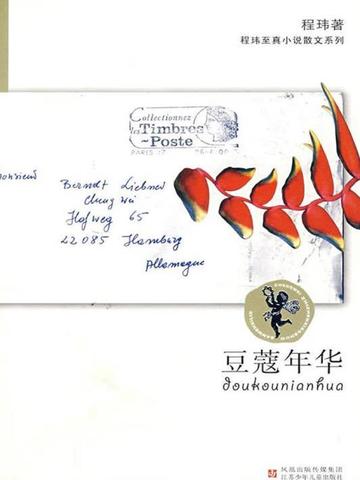 程玮著
程玮至真小说散文系列
Collectionnez
les Timbres
~Poste
PARIS 17
Monsieur
Berndt Liebner
Cheng Wei
Hofweg 65
22085 Hamburg
Allemagne
豆蔻年华
doukounianhua
凤凰出版传媒集团
江苏少年儿童出版社